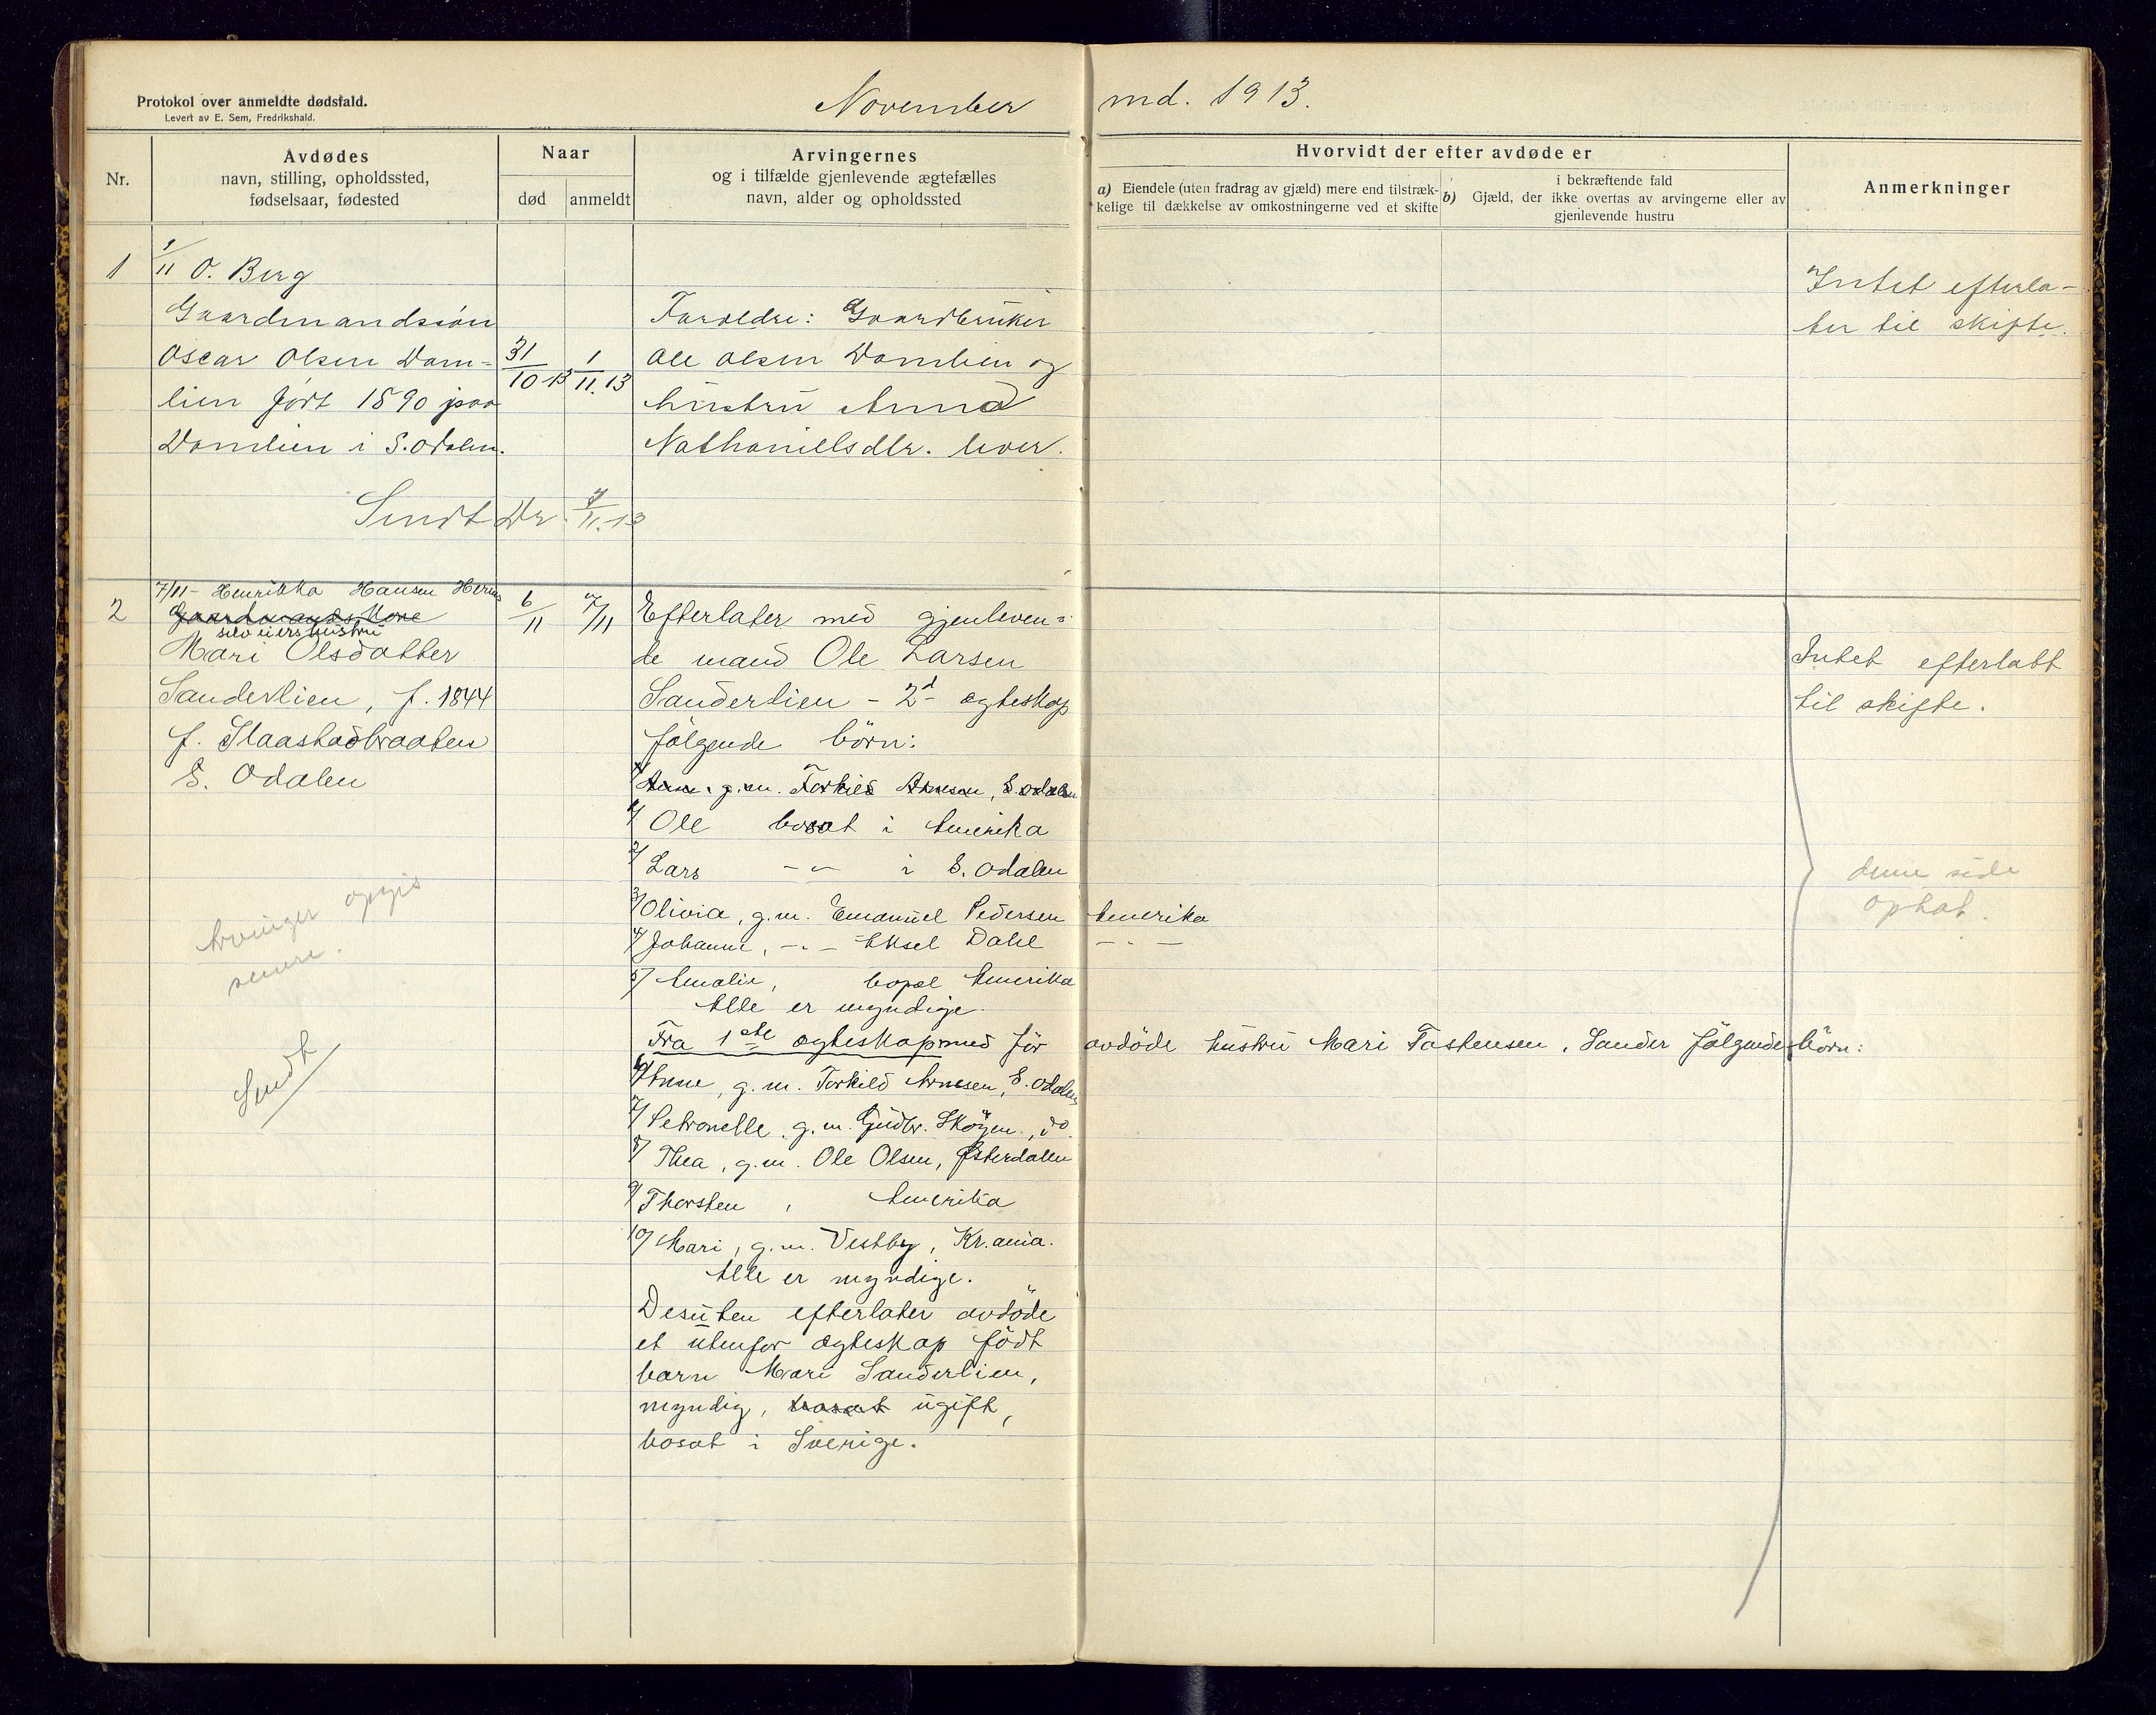 Protokol over anmeldte dødsfald.
Levert av E. Sem, Fredrikshald.
November md. 1913.
Nr.
Avdødes
navn, stilling, opholdssted,
fødselsaar, fødested
Naar
død
anmeldt
Arvingernes
og i tilfælde gjenlevende ægtefælles
navn, alder og opholdssted
Hvorvidt der efter avdøde er
a) Eiendele (uten fradrag av gjæld) mere end tilstræk-
kelige til dækkelse av omkostningerne ved et skifte
i bekræftende fald
b) Gjæld, der ikke overtas av arvingerne eller av
gjenlevende hustru
Anmerkninger
1
1/11 O. Berg
Gaardmandssøn
Oscar Olsen Dam-
lien født 1890 paa
Damlien i S. Odalen.
31/10 13
1/11. 13
Foreldre: Gaardbruker
Ole Olsen Damlien og
hustru Anna
Nathanielsdtr. lever.
Intet efterla-
ter til skifte.
Sendt Dr. 4/11.13
2
7/11 - Henrikka Hansen
Gaardmands kone
selveiers hustru
Mari Olsdatter
Sanderlien, f. 1844
f. Slaastadbraaten
S. Odalen
6/11
7/11
Efterlater med gjenleven=
de mand Ole Larsen
Sanderlien - 2d ægteskap
følgende børn:
Anne g.m. Torkild Arnesen, S. Odalen
1/ Ole bosat i Amerika
2/ Lars -"- i S. Odalen
3/ Olivia, g.m. Emanuel Pedersen Amerika
4/ Johanne, -"- Aksel Dahl -"-
5/ Amalie, bopæl Amerika
Alle er myndige.
Fra 1ste ægteskap med før avdøde hustru Mari Tostensen, Sander følgende børn:
6/ Anne, g.m. Torkild Arnesen, S. Odalen
7/ Petronelle g.m. Gudbr. Skøyen, do.
8/ Thea, g.m. Ole Olsen, Østerdalen
9/ Thorsten, Amerika
10/ Mari, g.m. Vestby, Kr.ania.
Alle er myndige.
Desuten efterlater avdøde
et utenfor ægteskap født
barn Mari Sanderlien,
myndig, bosat ugift,
bosat i Sverige.
Intet efterlatt
til skifte.
denne side
optat.
Arvinger opgis
senere.
Sendt